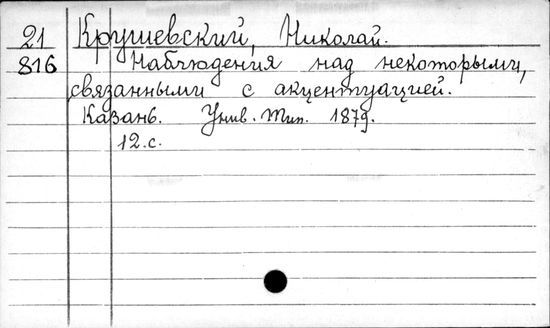 21 Крушевский, Николай.
816 Наблюдения над некоторыми,
связанными с акцентуацией.
Казань. Унив. Тип. 1879.
12.с.